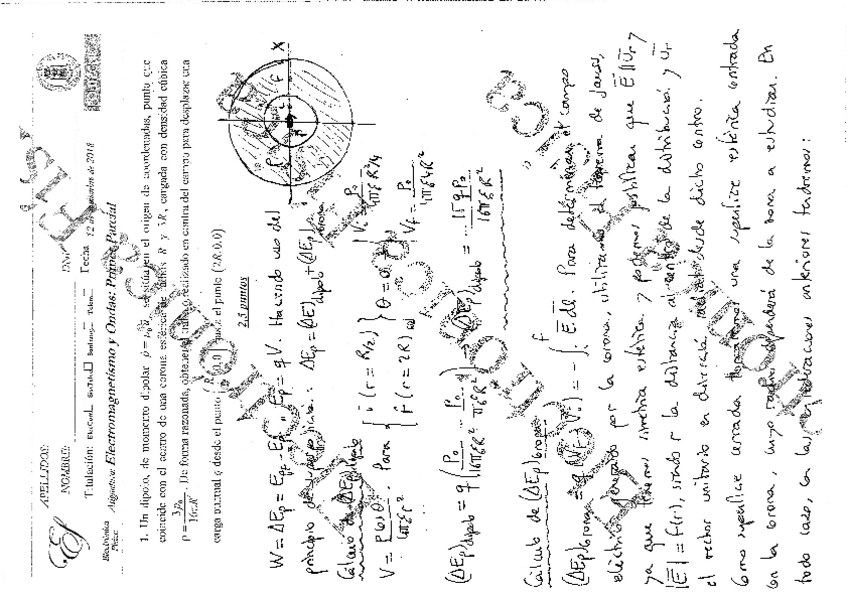 APELLIDOS:
NOMBRE: DNI:
Titulación: Fecha 12 de 2018
Electrónica
Física
Asignatura Electromagnetismo y Ondas: Primer Parcial
1. Un dipolo, de momento dipolar p⃗ = p₀u⃗ₓ, se sitúa en el origen de coordenadas, punto que
coincide con el centro de una corona esférica de radios R y 3R, cargada con densidad cúbica
ρ = 3p₀/16πR⁴. De forma razonada, obtener el trabajo realizado en contra del campo para desplazar una
carga puntual q desde el punto (R/2,0,0) hasta el punto (2R,0,0)
2,5 puntos
X
W = ΔEp = Epf - Epi ; Ep = qV. Haciendo uso del
principio de superposición: ΔEp = (ΔEp)dipolo + (ΔEp)corona
Cálculo de (ΔEp)dipolo
V = p cosθ / 4πε r². Para { i (r = R/2) f (r = 2R) } θ = 0 Vi = p₀ / 4πε R²/4 Vf = p₀ / 4πε 4R²
(ΔEp)dipolo = q (p₀/16πεR² - p₀/πεR²) → (ΔEp)dipolo = - 15 q p₀ / 16πεR²
Cálculo de (ΔEp)corona
(ΔEp)corona = q (Vf - Vi) = - ∫ E⃗ dl⃗. Para determinar el campo
eléctrico generado por la corona, utilizamos el teorema de Gauss,
ya que tenemos simetría esférica, y podemos justificar que E⃗ ∥ u⃗r y
|E⃗| = f(r), siendo r la distancia al centro de la distribución y u⃗r
el vector unitario en dirección radial desde dicho centro.
Como superficie cerrada tomaremos una superficie esférica centrada
en la corona, cuyo radio dependerá de la zona a estudiar. En
todo caso, en las anteriores tendremos: